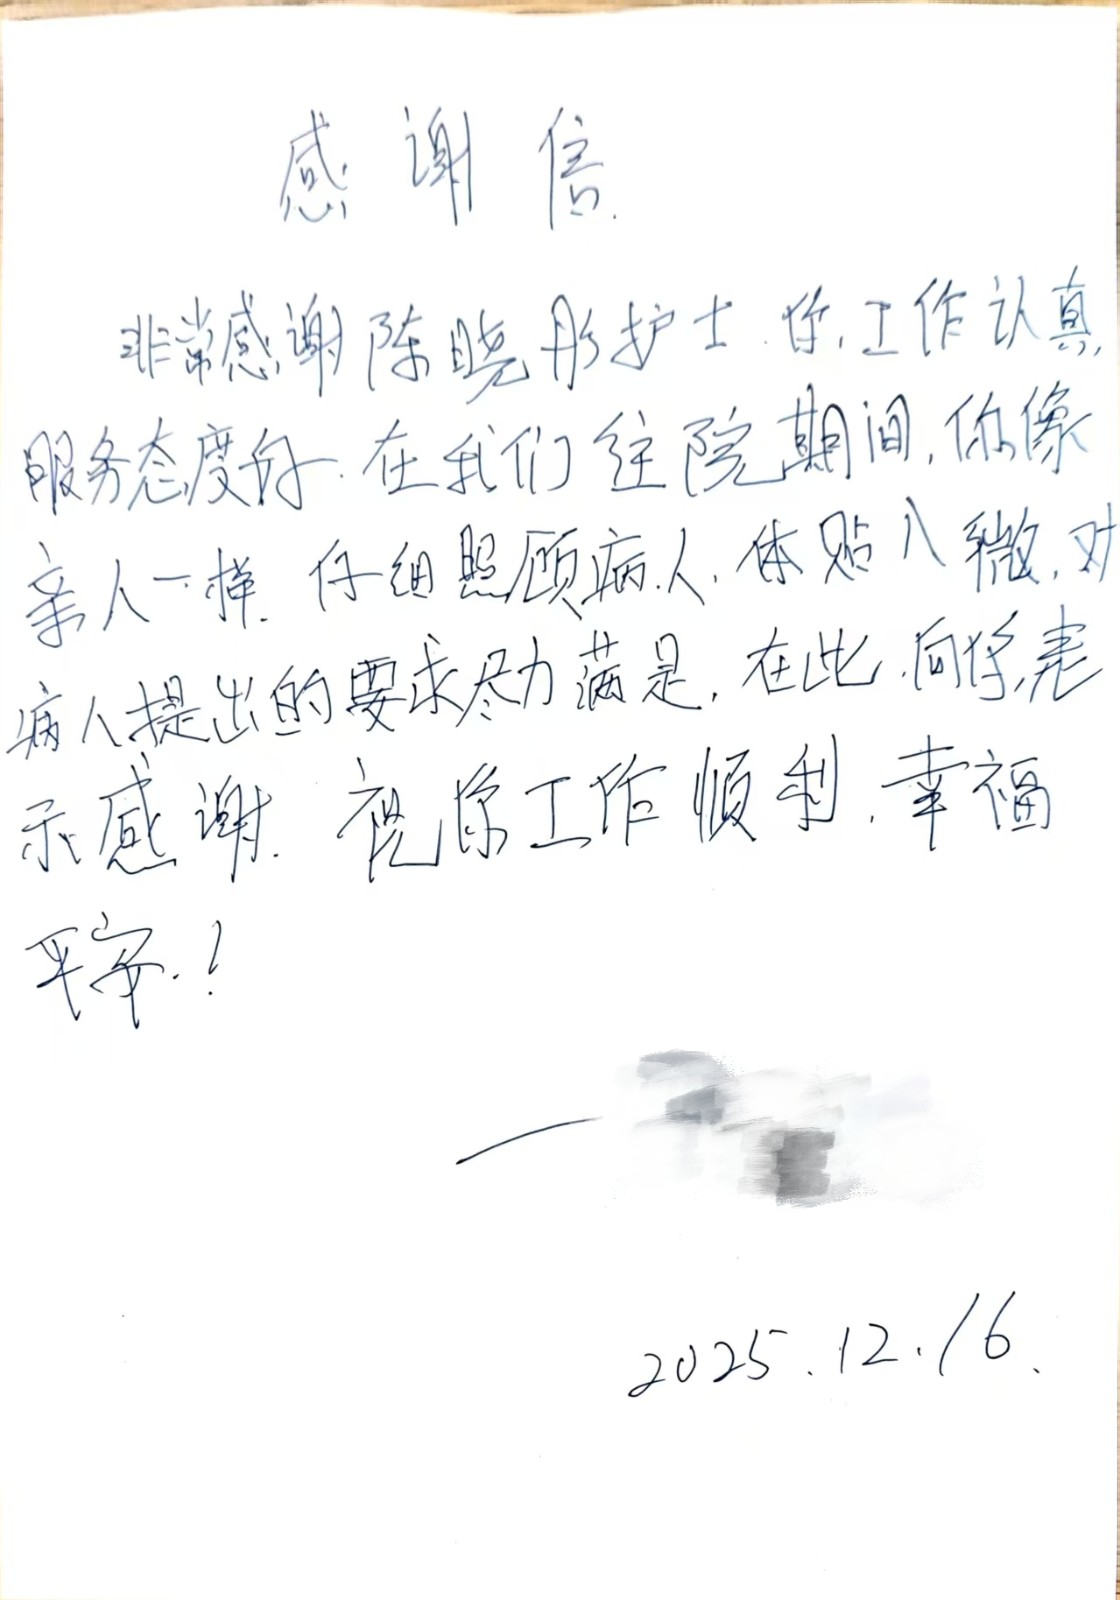 感谢信
非常感谢陈晓彤护士.你,工作认真,
服务态度好.在我们住院期间,你像
亲人一样.仔细照顾病人,体贴入微,对
病人提出的要求尽力满足,在此,向你表
示感谢.祝你工作顺利,幸福
平安.!
2025.12.16.